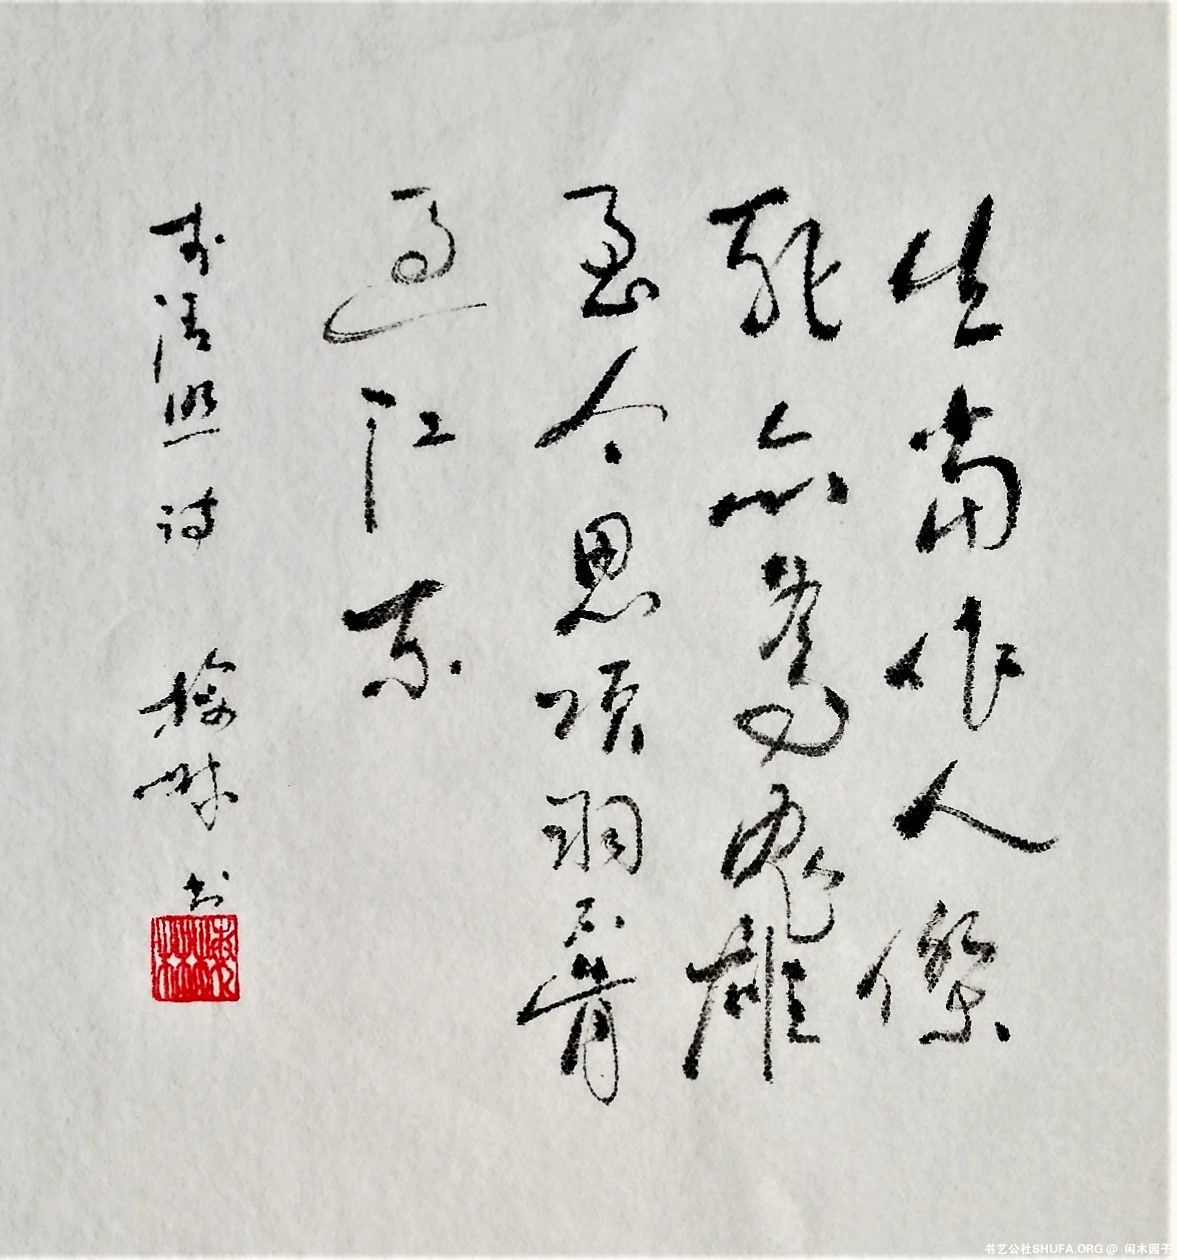 生当作人傑
死亦為鬼雄
至今思項羽不肯
過江东
李清照诗 梅林书
书艺公社SHUFA.ORG@ 闲木园子